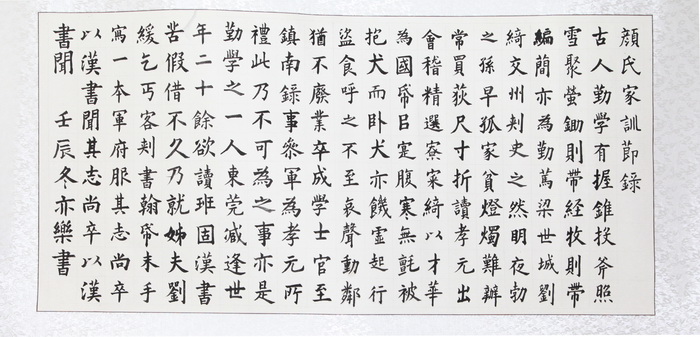 顏氏家訓節錄
古人勤學有握錐投斧照
雪聚螢鋤則帶経牧則帶
編簡亦為勤篤梁世城劉
綺交州刺史之然明夜勃
之孫早孤家貧燈燭難辦
常買荻尺寸折讀孝元出
會稽精選寮寀綺以才華
為國帋㠯寔腹寒無氈被
抱犬而卧犬亦饑虛起行
盜食呼之不至哀聲動鄰
猶不廢業卒成學士官至
鎮南錄事參軍為孝元所
禮此乃不可為之事亦是
勤學之一人東莞臧逢世
年二十餘欲讀班固漢書
苦假借不久乃就姊夫劉
緩乞丐客刺書翰帋末手
寫一本軍府服其志尚卒
以漢書聞其志尚卒以漢
書聞 壬辰冬亦樂書